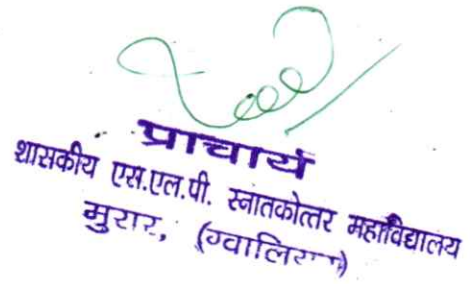 प्राचार्य
शासकीय एस.एल.पी. स्नातकोत्तर महाविद्यालय
मुरार, (ग्वालियर)